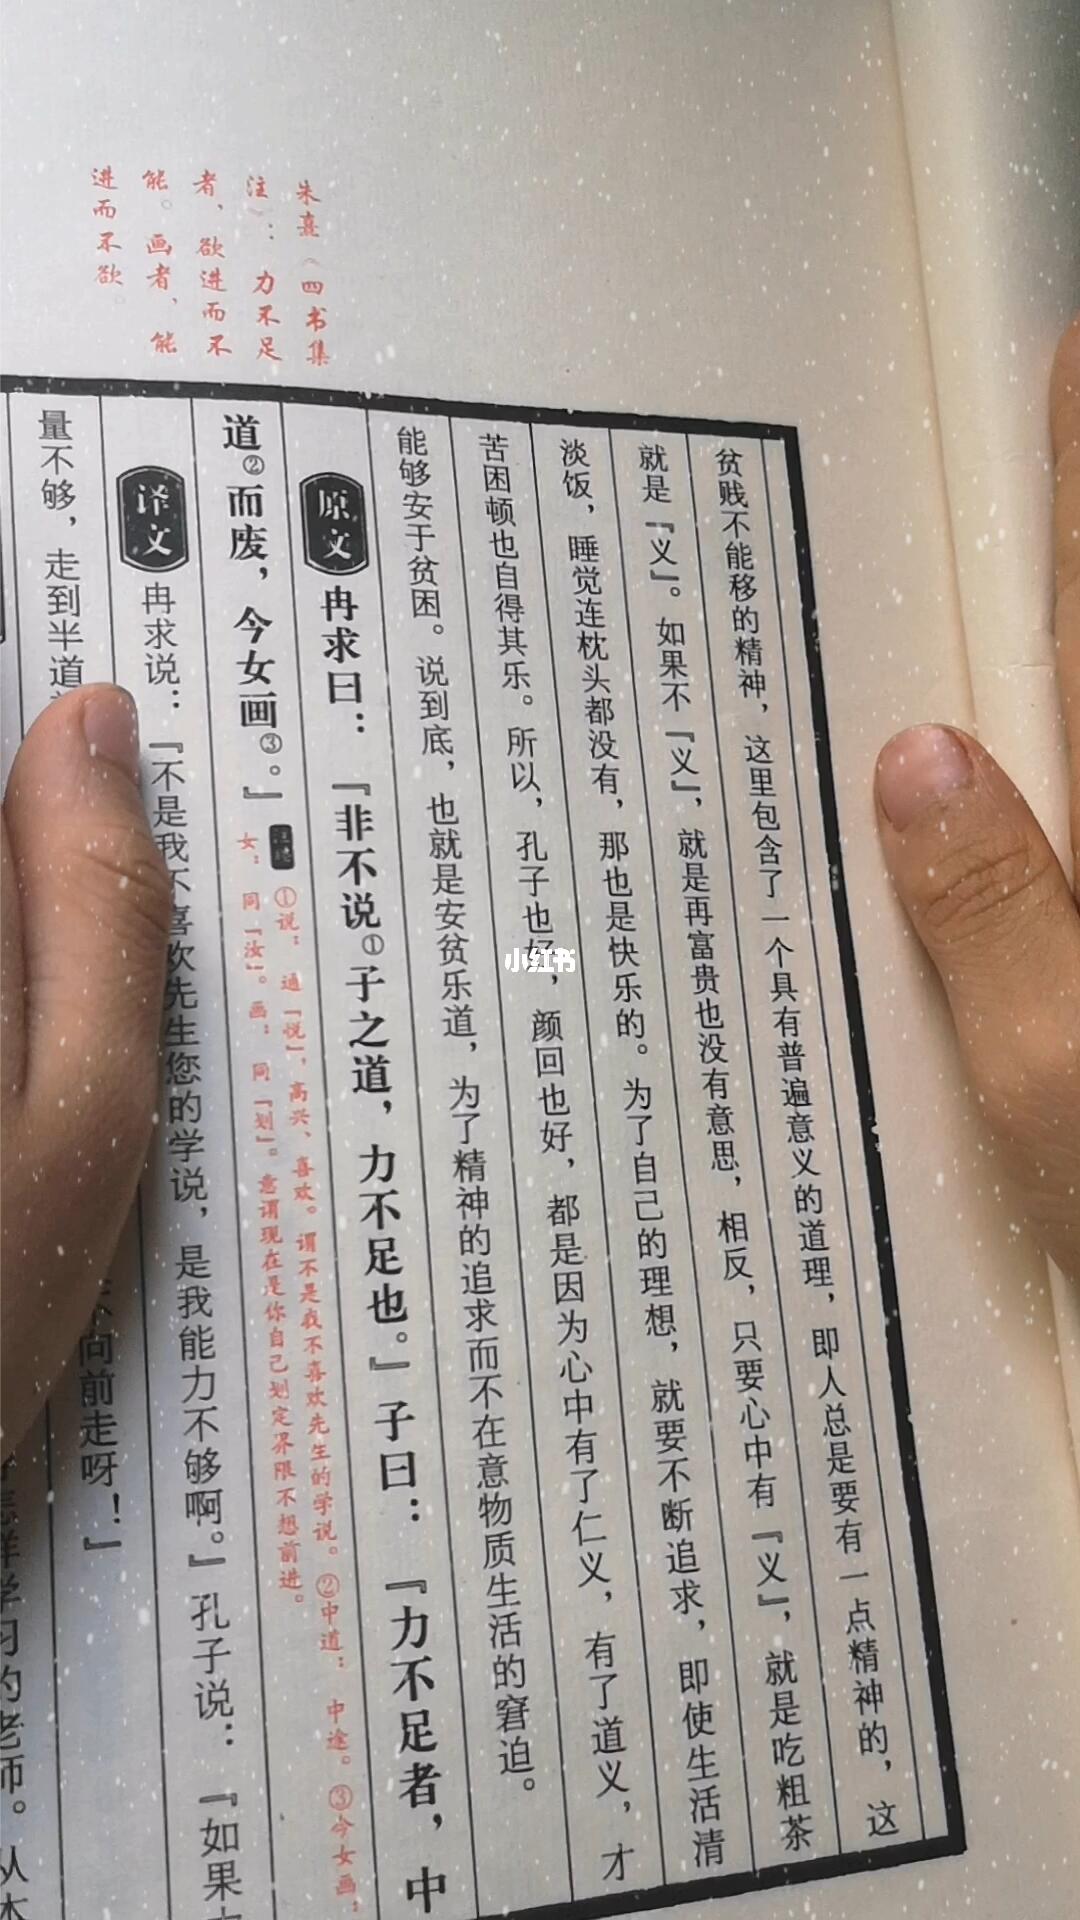 朱熹《四书集
注》：力不足
者，欲进而不
能。画者，能
进而不欲。
贫贱不能移的精神，这里包含了一个具有普遍意义的道理，即人总是要有一点精神的，这
就是『义』。如果不『义』，就是再富贵也没有意思，相反，只要心中有『义』，就是吃粗茶
淡饭，睡觉连枕头都没有，那也是快乐的。为了自己的理想，就要不断追求，即使生活清
苦困顿也自得其乐。所以，孔子也好，颜回也好，都是因为心中有了仁义，有了道义，才
能够安于贫困。说到底，也就是安贫乐道，为了精神的追求而不在意物质生活的窘迫。
原文 冉求曰：『非不说①子之道，力不足也。』子曰：『力不足者，中
道②而废，今女画③。』
①说：通『悦』，高兴、喜欢。谓不是我不喜欢先生的学说。②中道：中途。③今女画，
女：同『汝』。画：同『划』。意谓现在是你自己划定界限不想前进。
译文 冉求说：『不是我不喜欢先生您的学说，是我能力不够啊。』孔子说：『如果
量不够，走到半道
向前走呀！』
怎样学习的老师。从
小红书